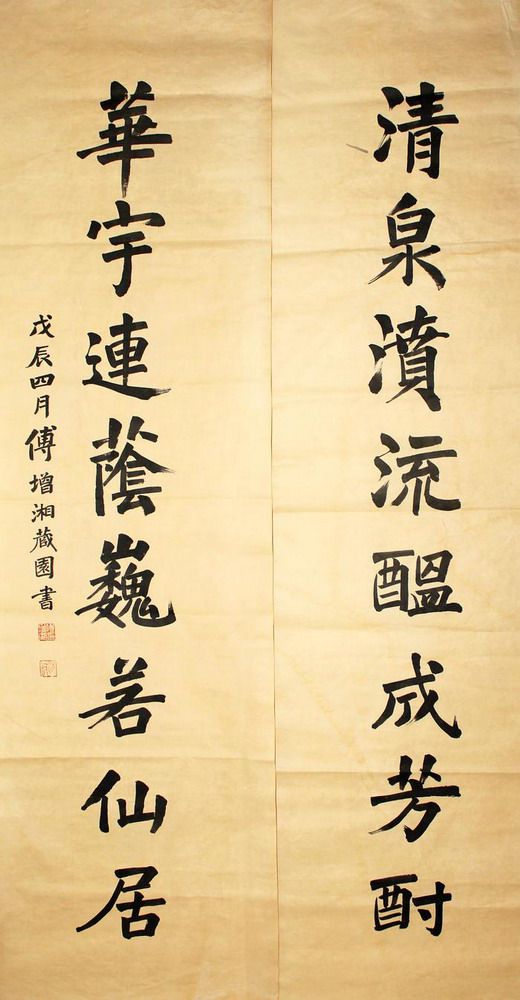 清泉濆流醖成芳酎
華宇連蔭巍若仙居
戊辰四月傅增湘藏園書